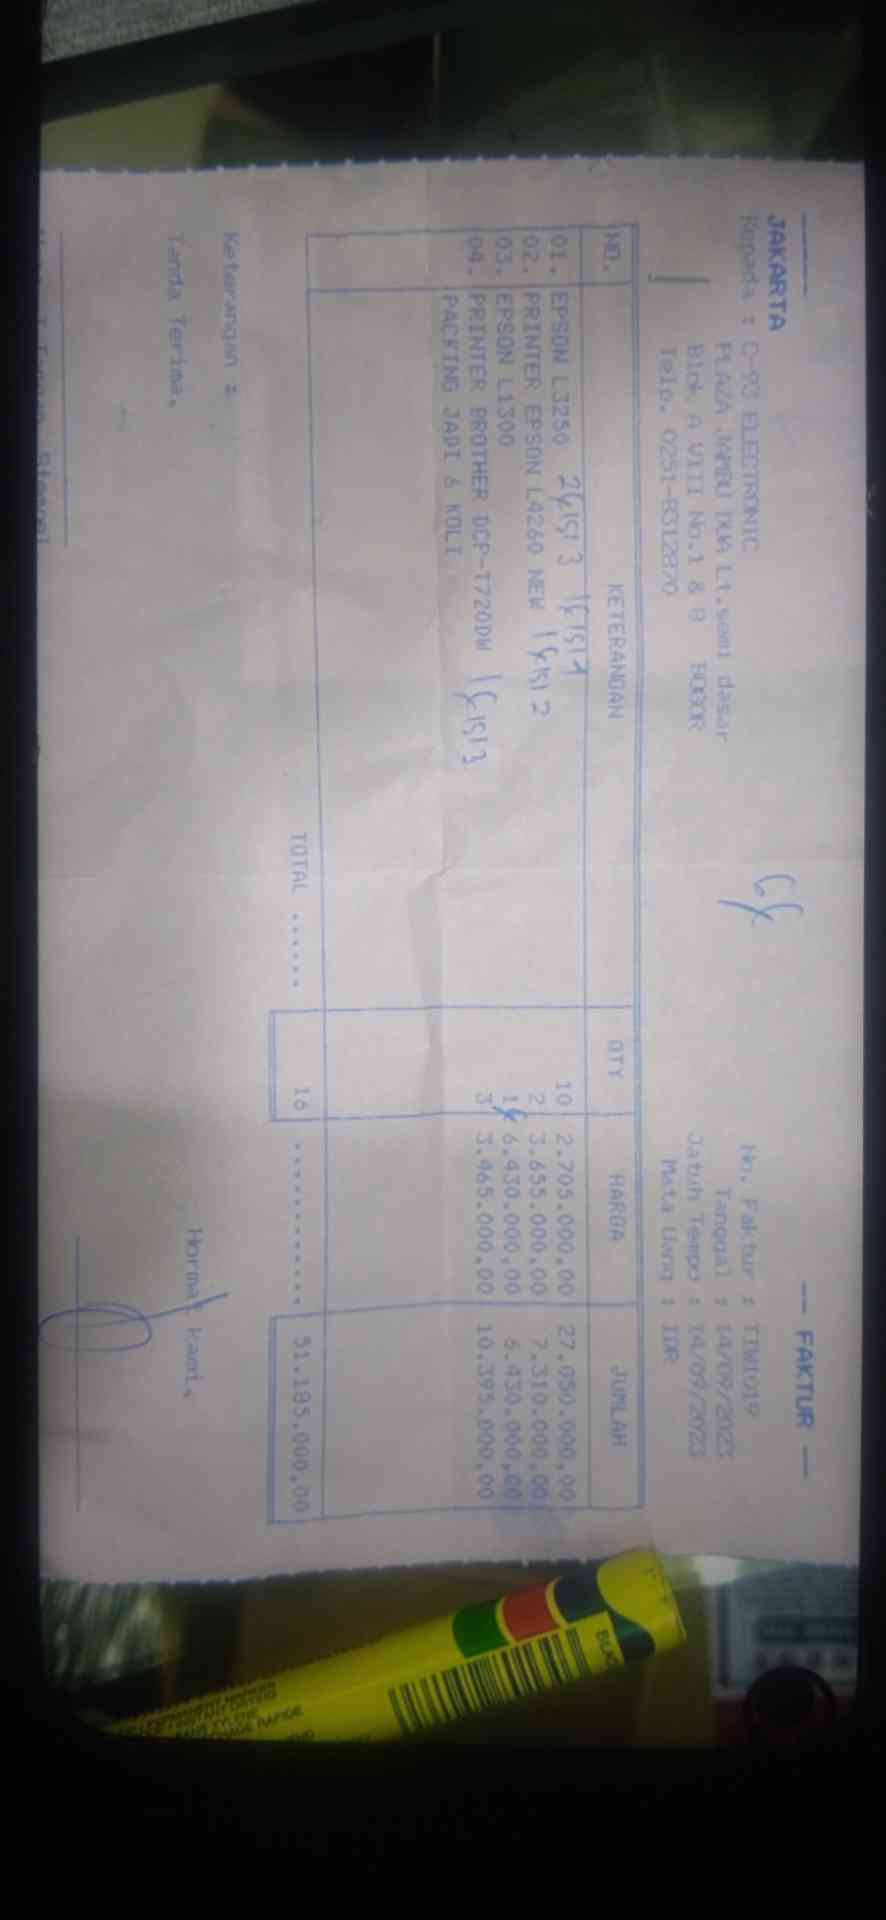 JAKARTA
— FAKTUR —
Kepada : C-93 ELECTRONIC
PLAZA JAMBU DUA Lt.semi dasar
Blok A VIII No.1 & 8 BOGOR
Telp. 0251-8312870
No. Faktur : TIWI019
Tanggal : 14/09/2023
Jatuh Tempo : 14/09/2023
Mata Uang : IDR
NO. KETERANGAN QTY HARGA JUMLAH
01. EPSON L3250 10 2.705.000,00 27.050.000,00
02. PRINTER EPSON L4260 NEW 2 3.655.000,00 7.310.000,00
03. EPSON L1300 1 6.430.000,00 6.430.000,00
04. PRINTER BROTHER DCP-T720DW 3 3.465.000,00 10.395.000,00
PACKING JADI 6 KOLI
TOTAL ...... 16 ............ 51.185.000,00
Keterangan :
Tanda Terima,
Hormat kami,
BLAC